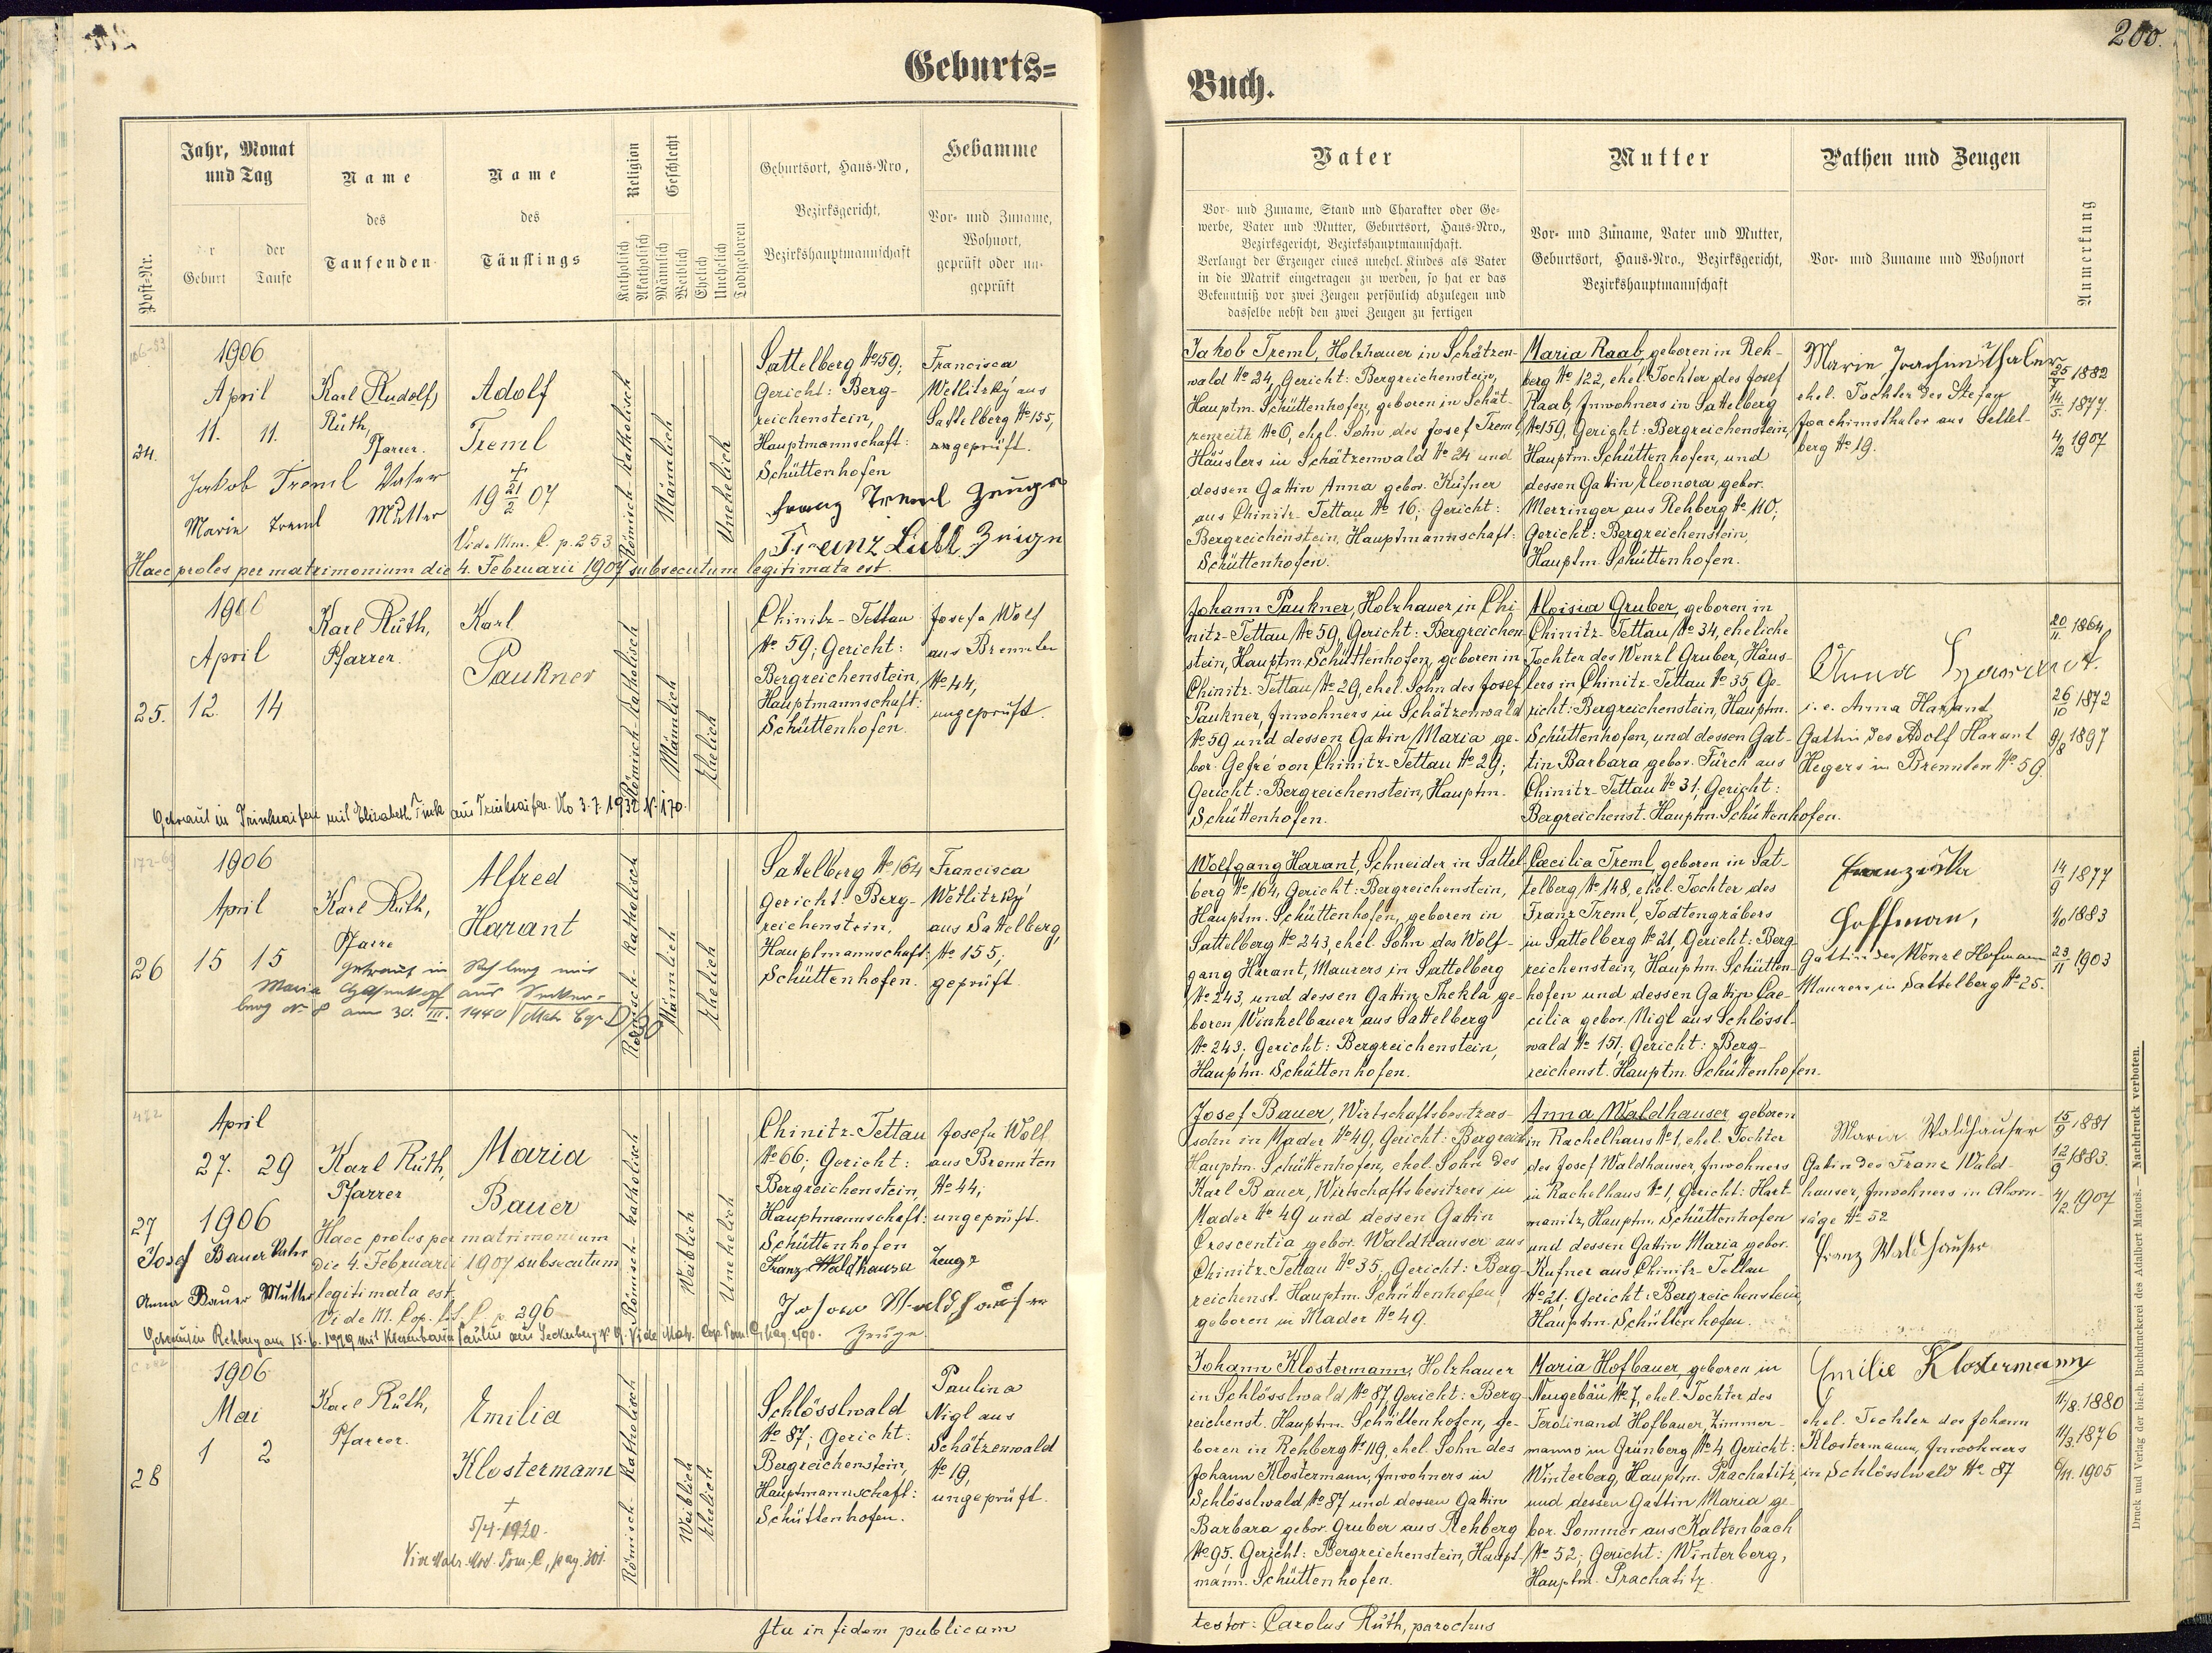 200.
Geburts=
Buch.
Post-Nr.
Jahr, Monat
und Tag
Geburt
der
Taufe
Name
des
Taufenden
Name
des
Täuflings
Religion
Katholisch
Akatholisch
Geschlecht
Männlich
Weiblich
Ehelich
Unehelich
Todtgeboren
Geburtsort, Haus-Nro,
Bezirksgericht,
Bezirkshauptmannschaft
Hebamme
Vor- und Zuname,
Wohnort,
geprüft oder un-
geprüft
Vater
Vor- und Zuname, Stand und Charakter oder Ge-
werbe, Vater und Mutter, Geburtsort, Haus-Nro.,
Bezirksgericht, Bezirkshauptmannschaft.
Verlangt der Erzeuger eines unehel. Kindes als Vater
in die Matrik eingetragen zu werden, so hat er das
Bekenntniß vor zwei Zeugen persönlich abzulegen und
dasselbe nebst den zwei Zeugen zu fertigen
Mutter
Vor- und Zuname, Vater und Mutter,
Geburtsort, Haus-Nro., Bezirksgericht,
Bezirkshauptmannschaft
Pathen und Zeugen
Vor- und Zuname und Wohnort
Anmerkung
24.
1906
April
11. 11.
Karl Rudolf,
Rüth,
Pfarrer.
Adolf
Treml
+
19 21/2 07
Vide Mm. C. p. 253
Jakob Treml Vater
Marie Treml Mutter
Römisch-katholisch
Männlich
Unehelich
Sattelberg No 159;
Gericht: Berg-
reichenstein,
Hauptmannschaft:
Schüttenhofen
Francisca
Wetlitzky aus
Sattelberg No 155,
geprüft.
Franz Treml Zeuge
Franz Liebl Zeuge
Haec proles per matrimonium die 4. Februarii 1907 subsecutum legitimata est.
Jakob Treml, Holzhauer in Schätzen-
wald No 24, Gericht: Bergreichenstein,
Hauptm. Schüttenhofen, geboren in Schät-
zenreith No 6, ehel. Sohn des Josef Treml,
Häuslers in Schätzenwald No 24 und
dessen Gattin Anna gebor. Kufner
aus Chinitz-Tettau No 16; Gericht:
Bergreichenstein, Hauptmannschaft:
Schüttenhofen.
Maria Raab, geboren in Reh-
berg No 122, ehel. Tochter des Josef
Raab, Inwohners in Sattelberg
No 159, Gericht: Bergreichenstein,
Hauptm. Schüttenhofen, und
dessen Gattin Eleonora gebor.
Merzinger aus Rehberg No 110;
Gericht: Bergreichenstein,
Hauptm. Schüttenhofen.
Marie Joachimsthaler
ehel. Tochter des Stefan
Joachimsthaler aus Sattel-
berg No 19.
25/7 1882
14/5. 1877.
4/2 1907
25.
1906
April
12. 14
Karl Rüth,
Pfarrer.
Karl
Paukner
Römisch-katholisch
Männlich
Ehelich
Chinitz-Tettau
No 59; Gericht:
Bergreichenstein,
Hauptmannschaft:
Schüttenhofen.
Josefa Wolf
aus Brennten
No 44,
ungeprüft.
Getraut in Trinksaifen mit Elisabeth Fink aus Trinksaifen. No 3.7.1932 N. 170.
Johann Paukner, Holzhauer in Chi-
nitz-Tettau No 59, Gericht: Bergreichen-
stein, Hauptm. Schüttenhofen, geboren in
Chinitz-Tettau No 29, ehel. Sohn des Josef
Paukner, Inwohners in Schätzenwald
No 59 und dessen Gattin Maria ge-
bor. Gefre von Chinitz-Tettau No 29;
Gericht: Bergreichenstein, Hauptm.
Schüttenhofen.
Aloisia Gruber, geboren in
Chinitz-Tettau No 34, eheliche
Tochter des Wenzl Gruber, Häus-
lers in Chinitz-Tettau No 35 Ge-
richt: Bergreichenstein, Hauptm.
Schüttenhofen, und dessen Gat-
tin Barbara gebor. Fürch aus
Chinitz-Tettau No 31; Gericht:
Bergreichenst. Hauptm. Schüttenhofen.
Anna Harant.
i. e. Anna Harant,
Gattin des Adolf Harant
Hegers in Brennten No 59.
20/11 1864
26/10 1872
9/8 1897
26
1906
April
15 15
Karl Rüth,
Pfarre
Alfred
Harant
Römisch-katholisch
Männlich
Ehelich
Sattelberg No 164
Gericht: Berg-
reichenstein,
Hauptmannschaft:
Schüttenhofen.
Francisca
Wetlitzky
aus Sattelberg,
No 155,
geprüft.
getraut in Rehberg mit
Maria aus
berg No 8 am 30. III. 1940
Wolfgang Harant, Schneider in Sattel-
berg No 164, Gericht: Bergreichenstein,
Hauptm. Schüttenhofen, geboren in
Sattelberg No 243, ehel. Sohn des Wolf-
gang Harant, Maurers in Sattelberg
No 243, und dessen Gattin Thekla ge-
boren Winkelbauer aus Sattelberg
No 243; Gericht: Bergreichenstein,
Hauptm. Schüttenhofen.
Cæcilia Treml, geboren in Sat-
telberg No 148, ehel. Tochter des
Franz Treml, Todtengräbers
in Sattelberg No 21, Gericht: Berg-
reichenstein, Hauptm. Schütten-
hofen und dessen Gattin Cae-
cilia gebor. Nigl aus Schlössl-
wald No 151; Gericht: Berg-
reichenst. Hauptm. Schüttenhofen.
Franziska
Hoffman,
Gattin des Wenzl Hofmann
Maurers in Sattelberg No 25.
14/9 1877
1/10 1883
23/11 1903
27
April
27. 29
1906
Karl Rüth,
Pfarrer
Maria
Bauer
Römisch-katholisch
Weiblich
Unehelich
Chinitz-Tettau
No 66; Gericht:
Bergreichenstein,
Hauptmannschaft:
Schüttenhofen
Josefa Wolf
aus Brennten
No 44;
ungeprüft.
Josef Bauer Vater
Anna Bauer Mutter
Haec proles per matrimonium
die 4. Februarii 1907 subsecutum
legitimata est.
Vide M. Cop. p. 296
Franz Waldhauser Zeuge
Waldhauser
Zeuge
Getraut in Rehberg am 15. 6. 1929 mit Paulus aus Seckerberg No 9. Vide Matr. Cop. Tom. C, pag. 290.
Josef Bauer, Wirtschaftsbesitzers-
sohn in Mader No 49, Gericht: Bergreich.
Hauptm. Schüttenhofen, ehel. Sohn des
Karl Bauer, Wirtschaftsbesitzers in
Mader No 49 und dessen Gattin
Crescentia gebor. Waldhauser aus
Chinitz-Tettau No 35, Gericht: Berg-
reichenst. Hauptm. Schüttenhofen,
geboren in Mader No 49.
Anna Waldhauser, geboren
in Rachelhaus No 1, ehel. Tochter
des Josef Waldhauser, Inwohners
in Rachelhaus No 1, Gericht: Hart-
manitz, Hauptm. Schüttenhofen
und dessen Gattin Maria gebor.
Kufner aus Chinitz-Tettau
No 21; Gericht: Bergreichenstein,
Hauptm. Schüttenhofen.
Maria Waldhauser
Gatin des Franz Wald-
hauser, Inwohners in Ahorn-
säge No 52
Franz Waldhauser
15/9 1881
12/9 1883.
4/2. 1907
28
1906
Mai
1 2
Karl Rüth,
Pfarrer.
Emilia
Klostermann
+
5/4. 1920.
Vide Matr. Mort. Tom. C, pag. 301.
Römisch-katholisch
Weiblich
Ehelich
Schlösslwald
No 87; Gericht:
Bergreichenstein,
Hauptmannschaft:
Schüttenhofen.
Paulina
Nigl aus
Schätzenwald
No 19,
ungeprüft.
Johann Klostermann, Holzhauer
in Schlösslwald No 87, Gericht: Berg-
reichenst. Hauptm. Schüttenhofen, ge-
boren in Rehberg No 119, ehel. Sohn des
Johann Klostermann, Inwohners in
Schlösslwald No 87 und dessen Gattin
Barbara gebor. Gruber aus Rehberg
No 95. Gericht: Bergreichenstein, Haupt-
mann. Schüttenhofen.
Maria Hofbauer, geboren in
Neugebäu No 7, ehel. Tochter des
Ferdinand Hofbauer, Zimmer-
manns in Grünberg No 4, Gericht:
Winterberg, Hauptm. Prachatitz,
und dessen Gattin Maria ge-
bor. Sommer aus Kaltenbach
No 52; Gericht: Winterberg,
Hauptm. Prachatitz.
Emilie Klostermann
ehel. Tochter des Johann
Klostermann, Inwohners
in Schlösslwald No 87
11/8. 1880
11/3. 1876
6/11. 1905
Ita in fidem publicam
testor: Carolus Rüth, parochus
Druck und Verlag der bisch. Buchdruckerei des Adalbert Matouš. — Nachdruck verboten.